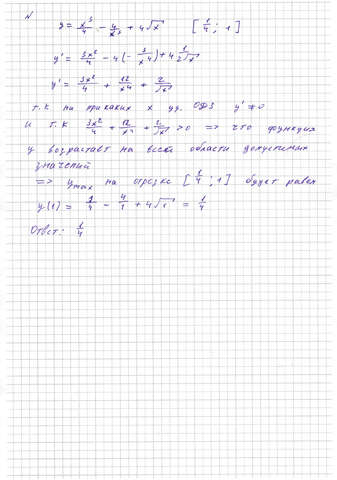 N
y = x³/4 - 4/x³ + 4√x [1/4 ; 1]
y' = 3x²/4 - 4(-3/x⁴) + 4 1/2√x
y' = 3x²/4 + 12/x⁴ + 2/√x
т.к ни при каких x уд. ОДЗ y' ≠ 0
и т.к 3x²/4 + 12/x⁴ + 2/√x > 0 => что функция
y возрастает на всей области допустимых
значений
=> yмах на отрезке [1/4 ; 1] будет равен
y(1) = 1/4 - 4/1 + 4√1 = 1/4
Ответ: 1/4